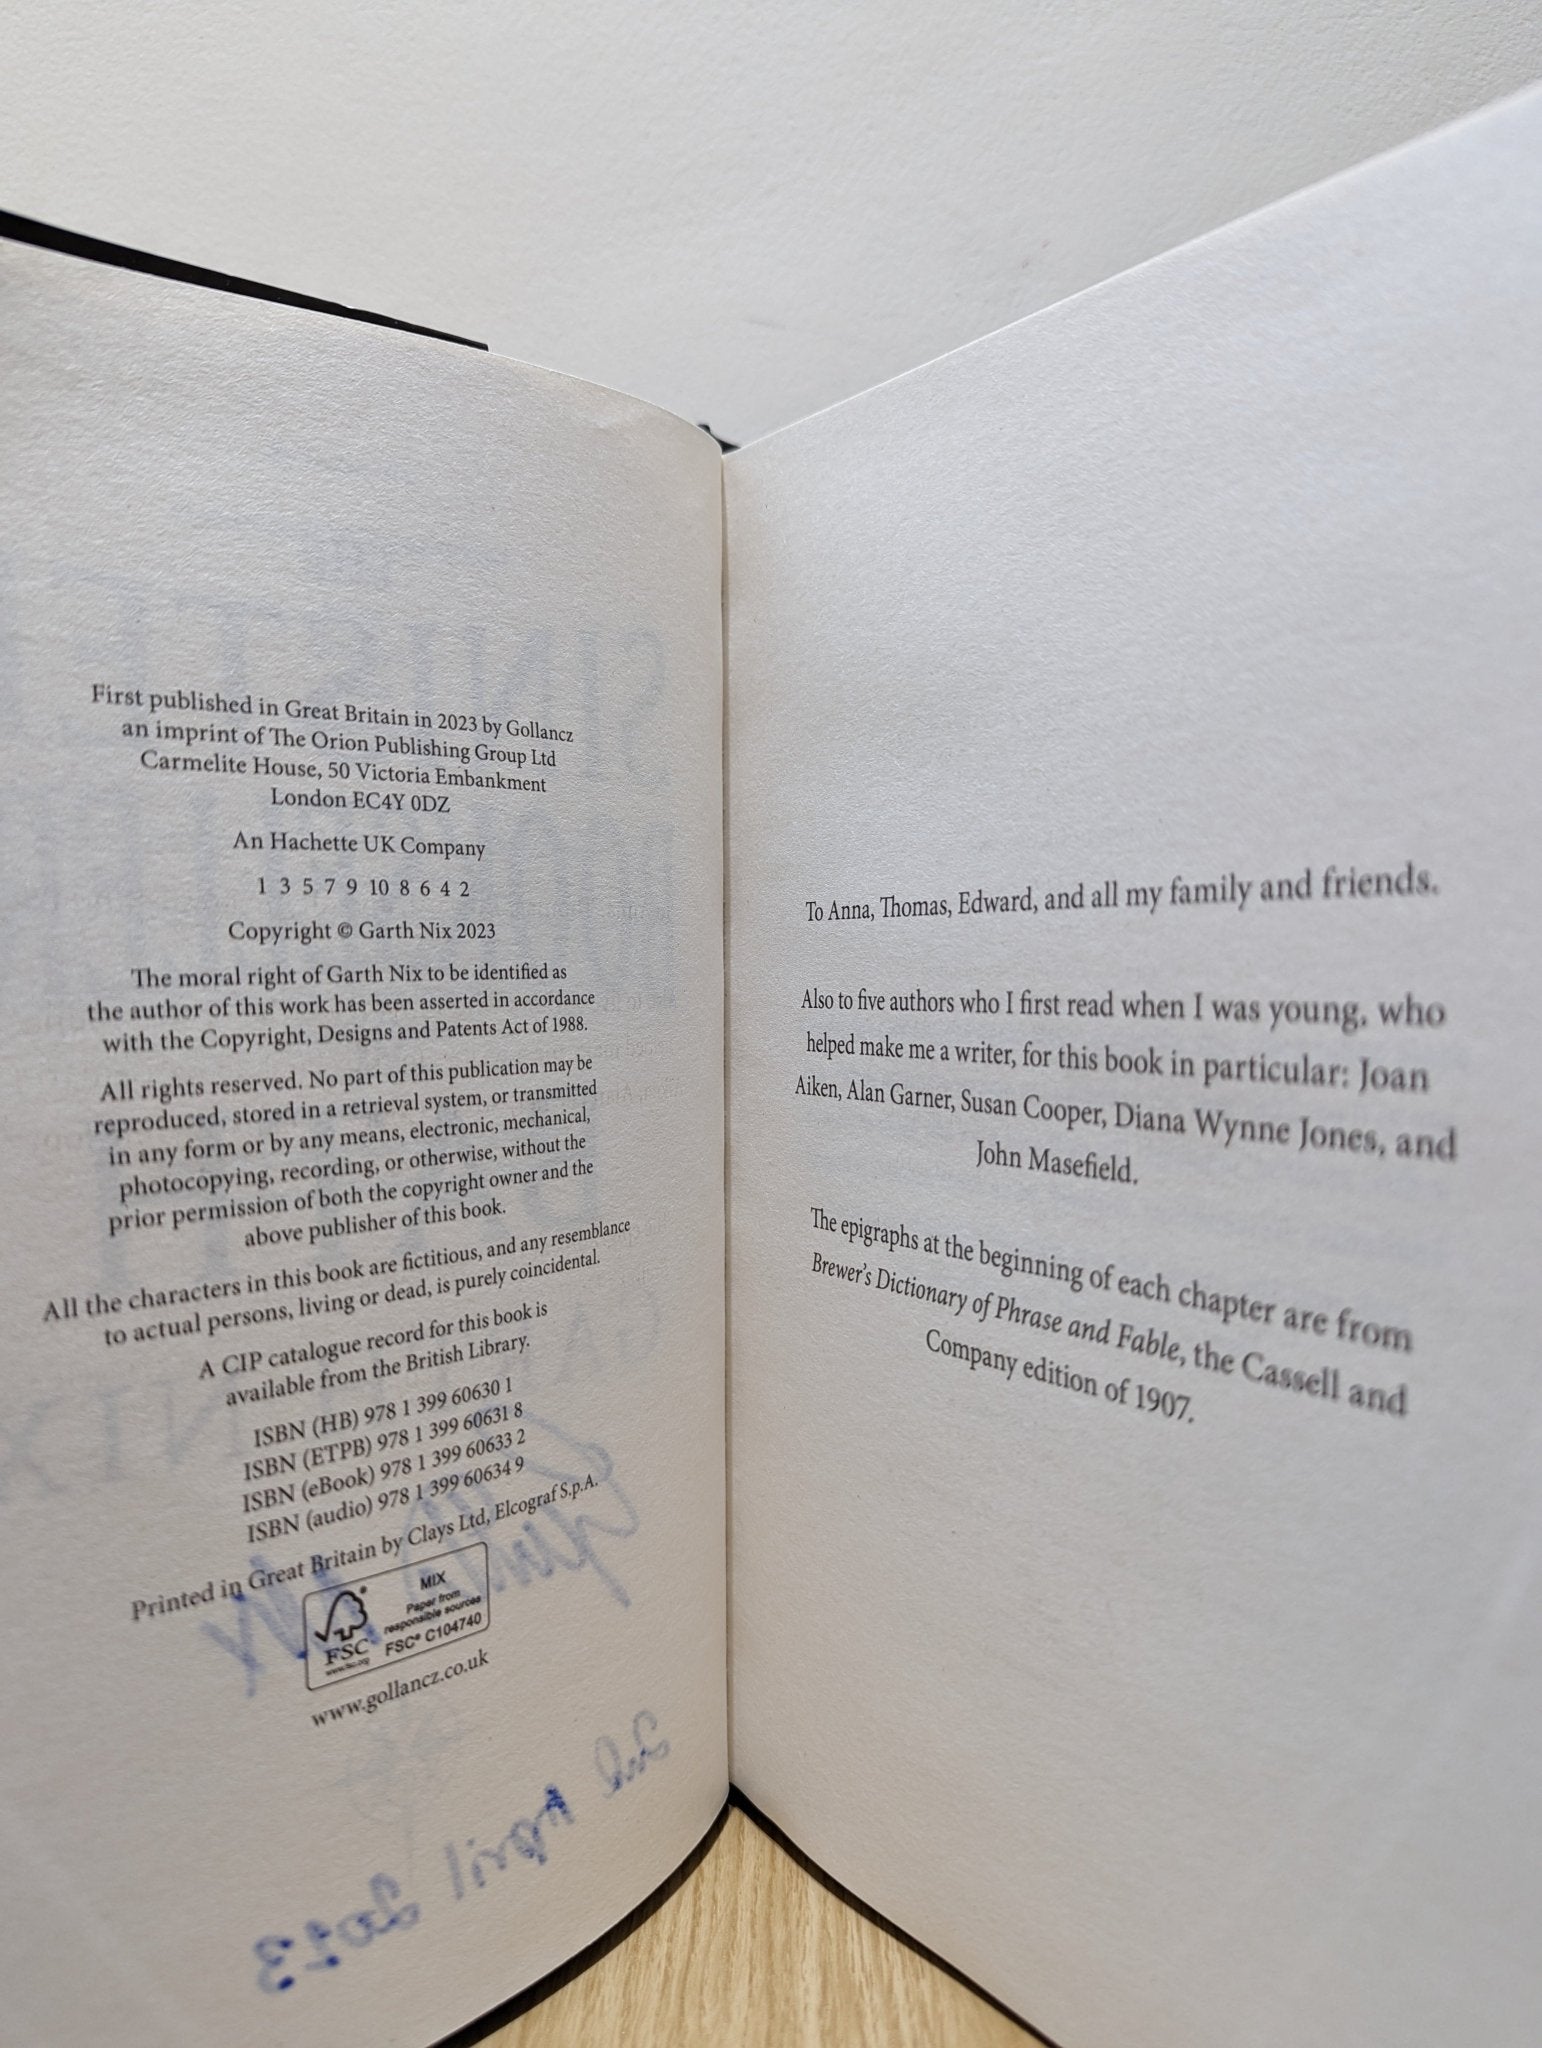 First published in Great Britain in 2023 by Gollancz
an imprint of The Orion Publishing Group Ltd
Carmelite House, 50 Victoria Embankment
London EC4Y 0DZ
An Hachette UK Company
1 3 5 7 9 10 8 6 4 2
Copyright © Garth Nix 2023
The moral right of Garth Nix to be identified as
the author of this work has been asserted in accordance
with the Copyright, Designs and Patents Act of 1988.
All rights reserved. No part of this publication may be
reproduced, stored in a retrieval system, or transmitted
in any form or by any means, electronic, mechanical,
photocopying, recording, or otherwise, without the
prior permission of both the copyright owner and the
above publisher of this book.
All the characters in this book are fictitious, and any resemblance
to actual persons, living or dead, is purely coincidental.
A CIP catalogue record for this book is
available from the British Library.
ISBN (HB) 978 1 399 60630 1
ISBN (ETPB) 978 1 399 60631 8
ISBN (eBook) 978 1 399 60633 2
ISBN (audio) 978 1 399 60634 9
Printed in Great Britain by Clays Ltd, Elcograf S.p.A.
FSC
www.fsc.org
MIX
Paper from
responsible sources
FSC® C104740
www.gollancz.co.uk
April 2023
To Anna, Thomas, Edward, and all my family and friends.
Also to five authors who I first read when I was young, who
helped make me a writer, for this book in particular: Joan
Aiken, Alan Garner, Susan Cooper, Diana Wynne Jones, and
John Masefield.
The epigraphs at the beginning of each chapter are from
Brewer's Dictionary of Phrase and Fable, the Cassell and
Company edition of 1907.